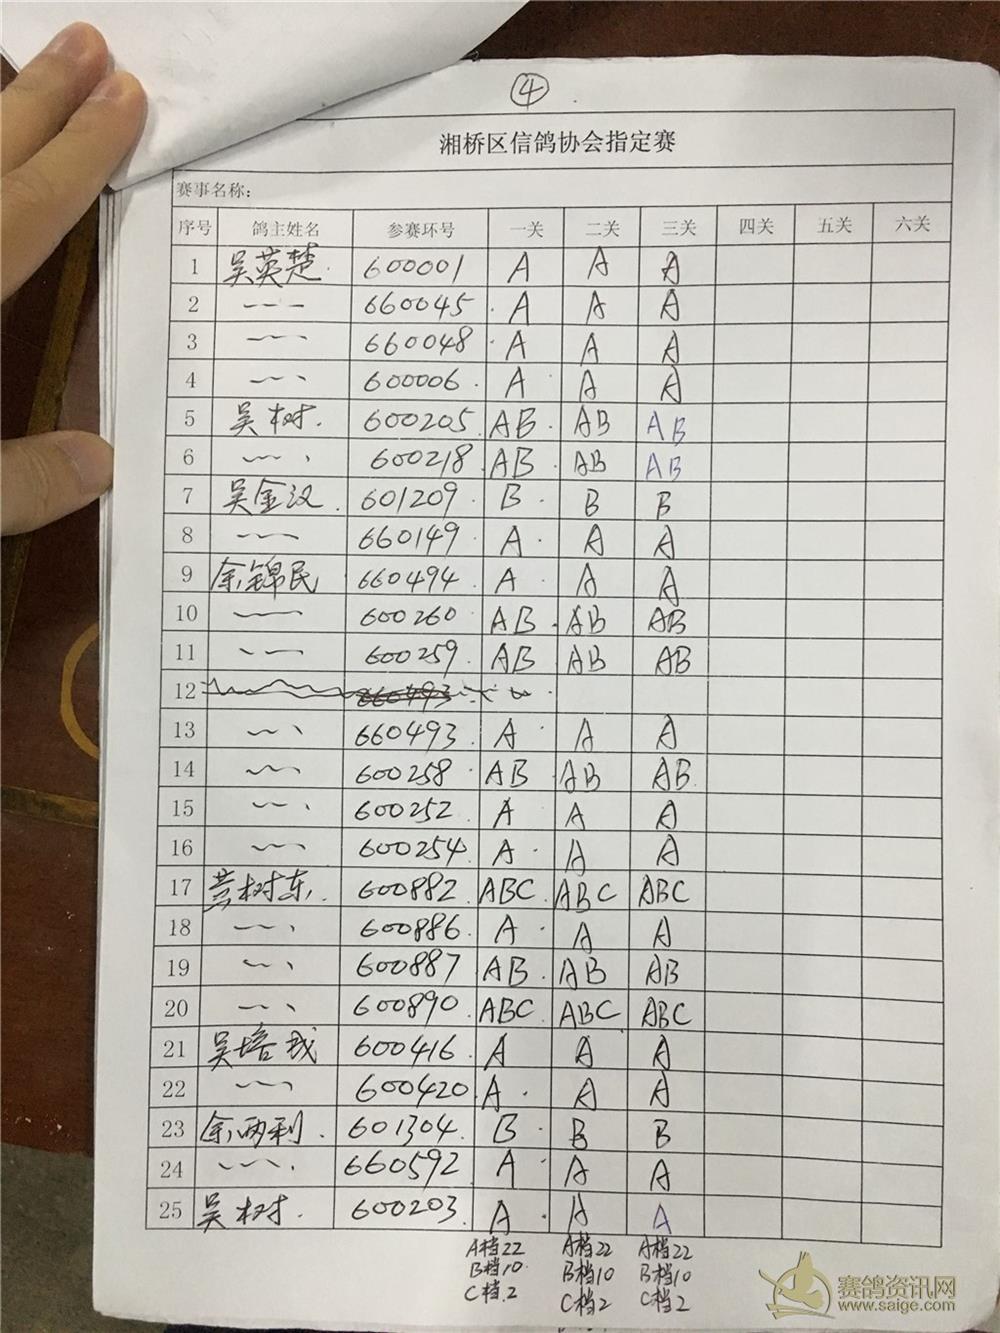 ④
湘桥区信鸽协会指定赛
赛事名称：
序号 鸽主姓名 参赛环号 一关 二关 三关 四关 五关 六关
1 吴英楚. 600001 A A A
2 660045 A A A
3 660048 A A A
4 600006 A A A
5 吴树. 600205 AB AB AB
6 600218 AB AB AB
7 吴金汉. 601209 B B B
8 660149 A A A
9 余锦民 660494 A A A
10 600260 AB AB AB
11 600259 AB AB AB
12 660493
13 660493 A A A
14 600258 AB AB AB
15 600252 A A A
16 600254 A A A
17 黄树东 600882 ABC ABC ABC
18 600886 A A A
19 600887 AB AB AB
20 600890 ABC ABC ABC
21 吴培 600416 A A A
22 600420 A A A
23 余两利. 601304 B B B
24 660592 A A A
25 吴树. 600203 A A A
A档22 A档22 A档22
B档10 B档10 B档10
C档2 C档2 C档2
赛鸽资讯网
www.saige.com